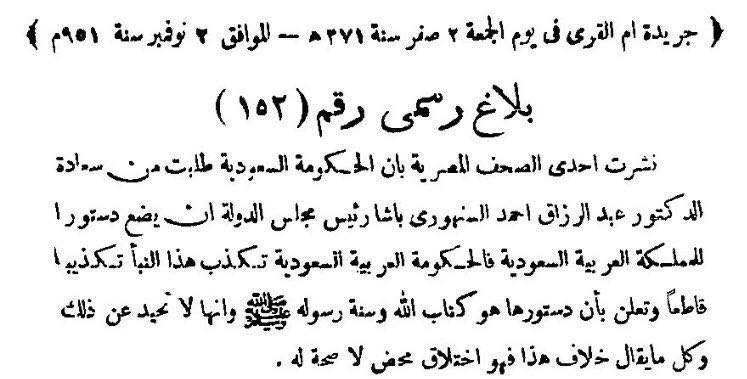 ﴿ جريدة ام القرى فى يوم الجمعة ٢ صفر سنة ٣٧١ﻫ — الموافق ٢ نوفمبر سنة ٩٥١م ﴾
بلاغ رسمى رقم ( ١٥٢ )
نشرت احدى الصحف المصرية بان الحكومة السعودية طلبت من سعادة
الدكتور عبد الرزاق احمد السنهورى باشا رئيس مجلس الدولة ان يضع دستورا
للمملكة العربية السعودية فالحكومة العربية السعودية تكذب هذا النبأ تكذيبا
قاطعاً وتعلن بأن دستورها هو كتاب الله وسنة رسوله ﷺ وانها لا تحيد عن ذلك
وكل مايقال خلاف هذا فهو اختلاق محض لا صحة له .